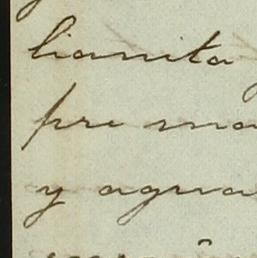 lianita
pre ma
y agua